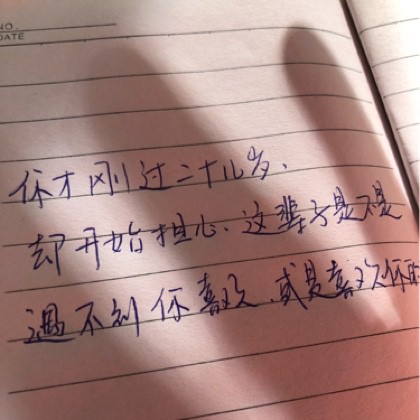 NO.
DATE
你才刚过二十几岁、
却开始担心、这辈子是不是
遇不到你喜欢、或是喜欢你的